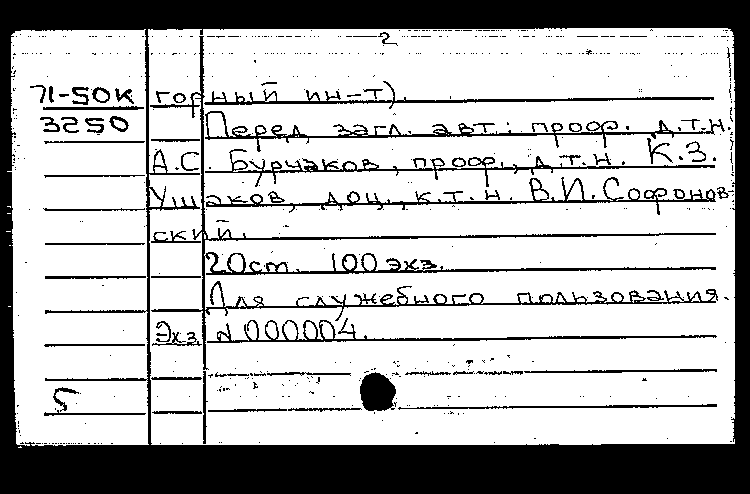 2
71-50К горный ин-т).
3250 Перед загл. авт.: проф. д.т.н.
А.С. Бурчаков, проф., д.т.н. К.З.
Ушаков, доц., к.т.н. В.И.Софронов-
ский.
20ст. 100 экз.
Для служебного пользования.
Экз №000004.
5